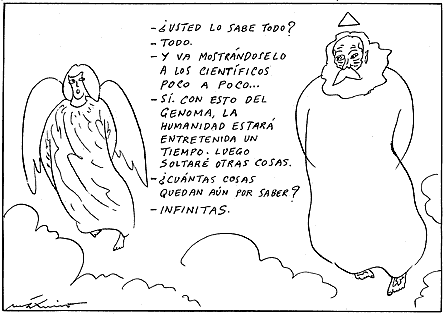 -¿USTED LO SABE TODO?
-TODO.
-Y VA MOSTRÁNDOSELO
A LOS CIENTÍFICOS
POCO A POCO...
-SÍ. CON ESTO DEL
GENOMA, LA
HUMANIDAD ESTARÁ
ENTRETENIDA UN
TIEMPO. LUEGO
SOLTARÉ OTRAS COSAS.
-¿CUÁNTAS COSAS
QUEDAN AÚN POR SABER?
-INFINITAS.
máximo